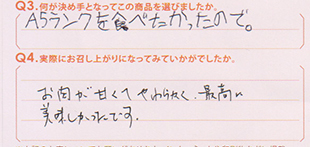 Q3.何が決め手となってこの商品を選びましたか。
A5ランクを食べたかったので。
Q4.実際にお召し上がりになってみていかがでしたか。
お肉が甘くて やわらかく、最高に
美味しかったです。